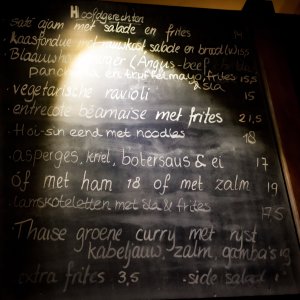 Hoofdgerechten
saté ajam met salade en frites
• Kaasfondue met rauwkost, salade en brood
Blaauwh burger (Angus-beef,
pancetta en truffelmayo, frites 15,5
sla
• vegetarische ravioli 15
• entrecote béarnaise met frites 21,5
• Hoi-sun eend met noodles 18
• asperges, kriel, botersaus & ei 17
óf met ham 18 of met zalm 19
• lamskoteletten met sla & frites 17,5
Thaise groene curry met rijst
kabeljauw, zalm, gamba's
extra frites 3,5 • side salad